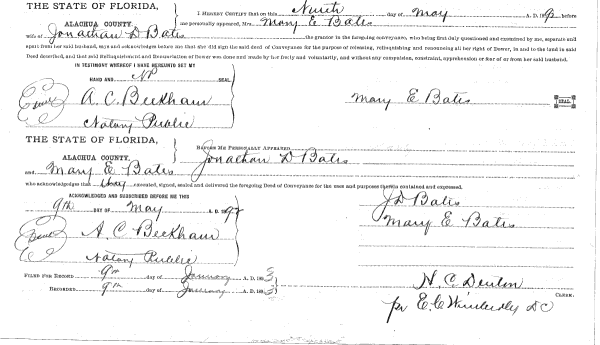 THE STATE OF FLORIDA,
ALACHUA COUNTY.
I HEREBY CERTIFY that on this Ninth day of May A. D. 189 before
me personally appeared, Mrs. Mary E Bates
wife of Jonathan D Bates the grantor in the foregoing conveyance, who being first duly questioned and examined by me, separate and
apart from her said husband, says and acknowledges before me that she did sign the said deed of Conveyance for the purpose of releasing, relinquishing and renouncing all her right of Dower, in and to the land in said
Deed described, and that said Relinquishment and Renunciation of Dower was done and made by her freely and voluntarily, and without any compulsion, constraint, apprehension or fear of or from her said husband.
IN TESTIMONY WHEREOF I HAVE HEREUNTO SET MY
HAND AND NP SEAL
A. C. Beckham
Notary Public
Mary E Bates SEAL.
THE STATE OF FLORIDA,
ALACHUA COUNTY.
BEFORE ME PERSONALLY APPEARED Jonathan D Bates
and Mary E Bates
who acknowledges that they executed, signed, sealed and delivered the foregoing Deed of Conveyance for the uses and purposes therein contained and expressed.
ACKNOWLEDGED AND SUBSCRIBED BEFORE ME THIS
9th DAY OF May A. D. 1892
J D Bates
Mary E Bates
A C Beckham
Notary Public
FILED FOR RECORD 9th day of January A. D. 1893
RECORDED 9th day of January A. D. 1893
H. C. Denton CLERK.
pr E. C. Wimberly D C